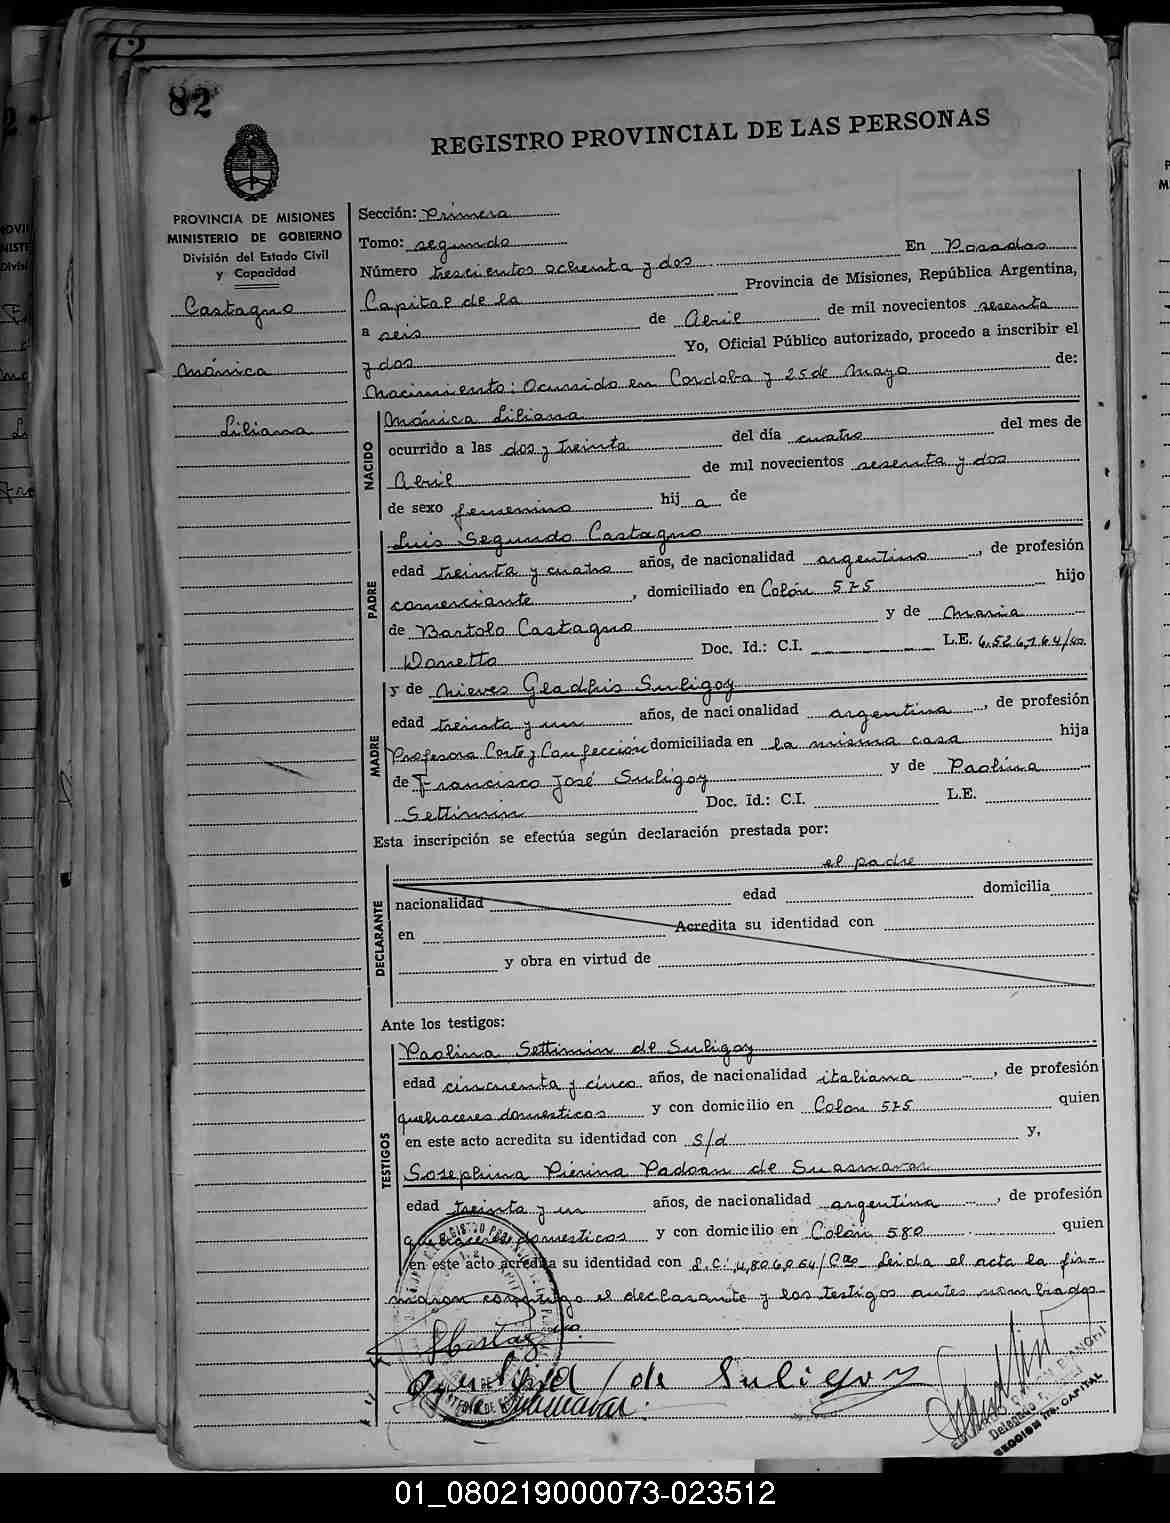 82
REGISTRO PROVINCIAL DE LAS PERSONAS
PROVINCIA DE MISIONES
MINISTERIO DE GOBIERNO
División del Estado Civil
y Capacidad
Castagno
Mónica
Liliana
Sección: Primera
Tomo: segundo
Número trescientos ochenta y dos En Posadas
Capital de la Provincia de Misiones, República Argentina,
a seis de Abril de mil novecientos sesenta
y dos Yo, Oficial Público autorizado, procedo a inscribir el
Nacimiento: Ocurrido en Cordoba y 25 de Mayo de:
NACIDO
Mónica Liliana
ocurrido a las dos y treinta del día cuatro del mes de
Abril de mil novecientos sesenta y dos
de sexo femenino hij a de
PADRE
Luis Segundo Castagno
edad treinta y cuatro años, de nacionalidad argentino, de profesión
comerciante, domiciliado en Colón 575 hijo
de Bartolo Castagno y de Maria
Donetto Doc. Id.: C.I. L.E. 6,526,764/
MADRE
y de Nieves Gladhis Suligoy
edad treinta y un años, de nacionalidad argentina, de profesión
Profesora Corte y Confección domiciliada en la misma casa hija
de Francisco José Suligoy y de Paolina
Settimin Doc. Id.: C.I. L.E.
Esta inscripción se efectúa según declaración prestada por:
el padre
DECLARANTE
nacionalidad edad domicilia
en Acredita su identidad con
y obra en virtud de
Ante los testigos:
TESTIGOS
Paolina Settimin de Suligoy
edad cincuenta y cinco años, de nacionalidad italiana, de profesión
quehaceres domesticos y con domicilio en Colon 575 quien
en este acto acredita su identidad con s/d y,
Sosephina Pierina Padoan de Suasnavar
edad treinta y un años, de nacionalidad argentina, de profesión
quehaceres domesticos y con domicilio en Colón 580 quien
en este acto acredita su identidad con L.C. 4,806,064/ Leida el acta la fir-
maron conmigo el declarante y los testigos antes nombrados
de Suligoy
Delegado
SECCION 1ra. CAPITAL
01_080219000073-023512